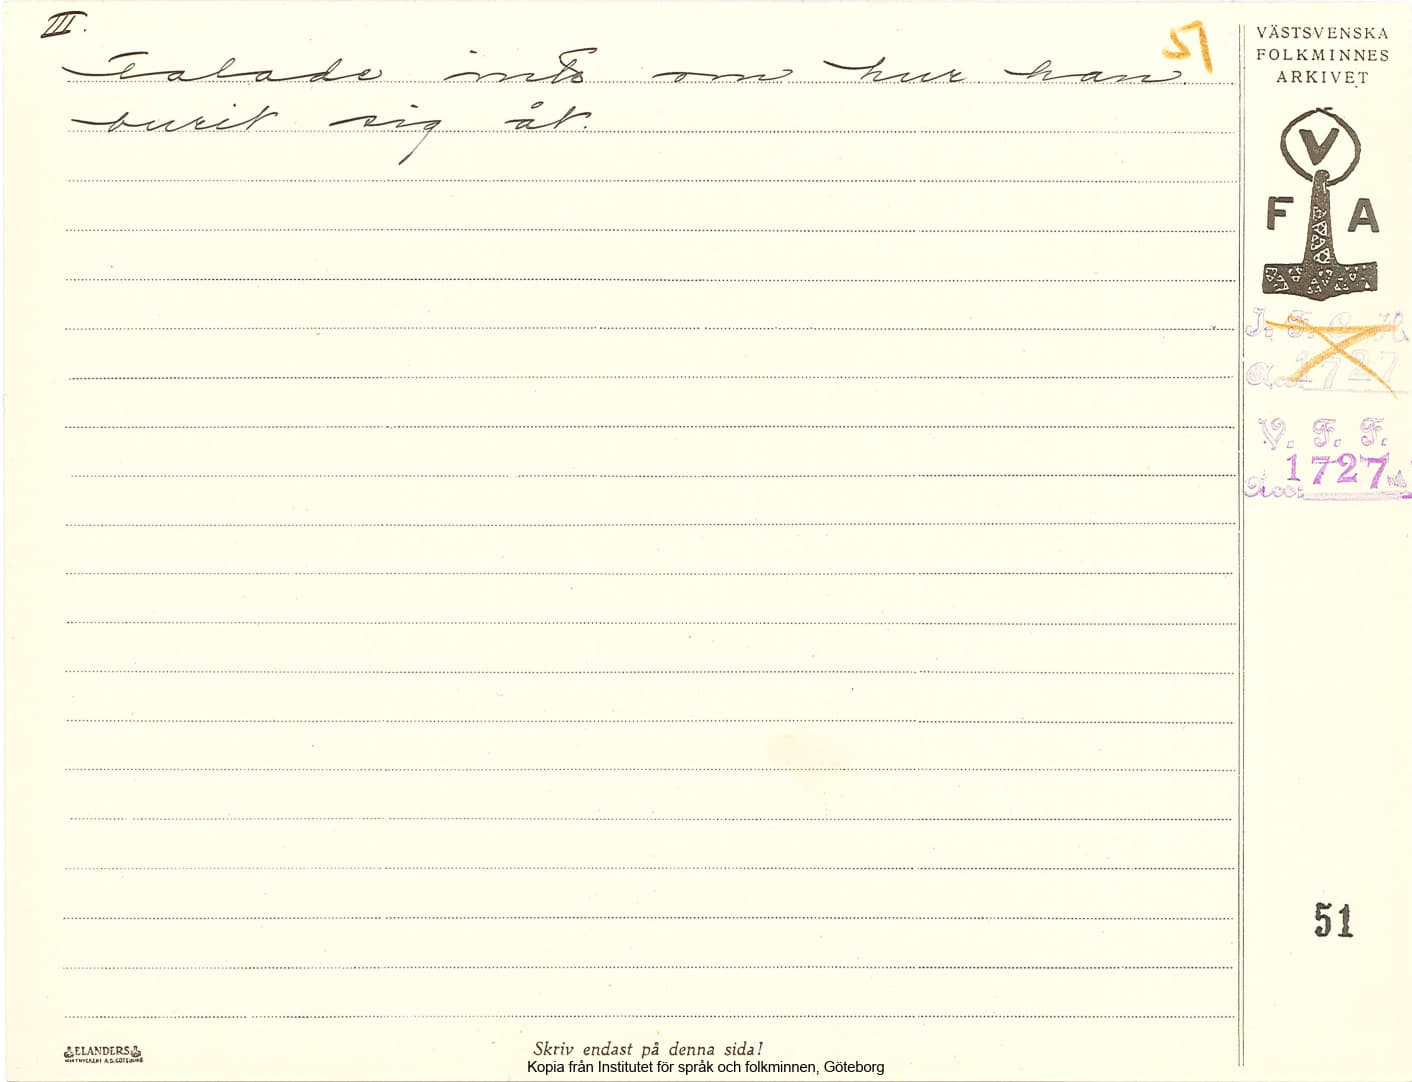 III.
51
Talade inte om hur han
burit sig åt.
VÄSTSVENSKA
FOLKMINNES
ARKIVET
V
F A
I. F. G. H.
Acc. 1727
V. F. F.
Acc: 1727
51
ELANDERS
Skriv endast på denna sida!
Kopia från Institutet för språk och folkminnen, Göteborg